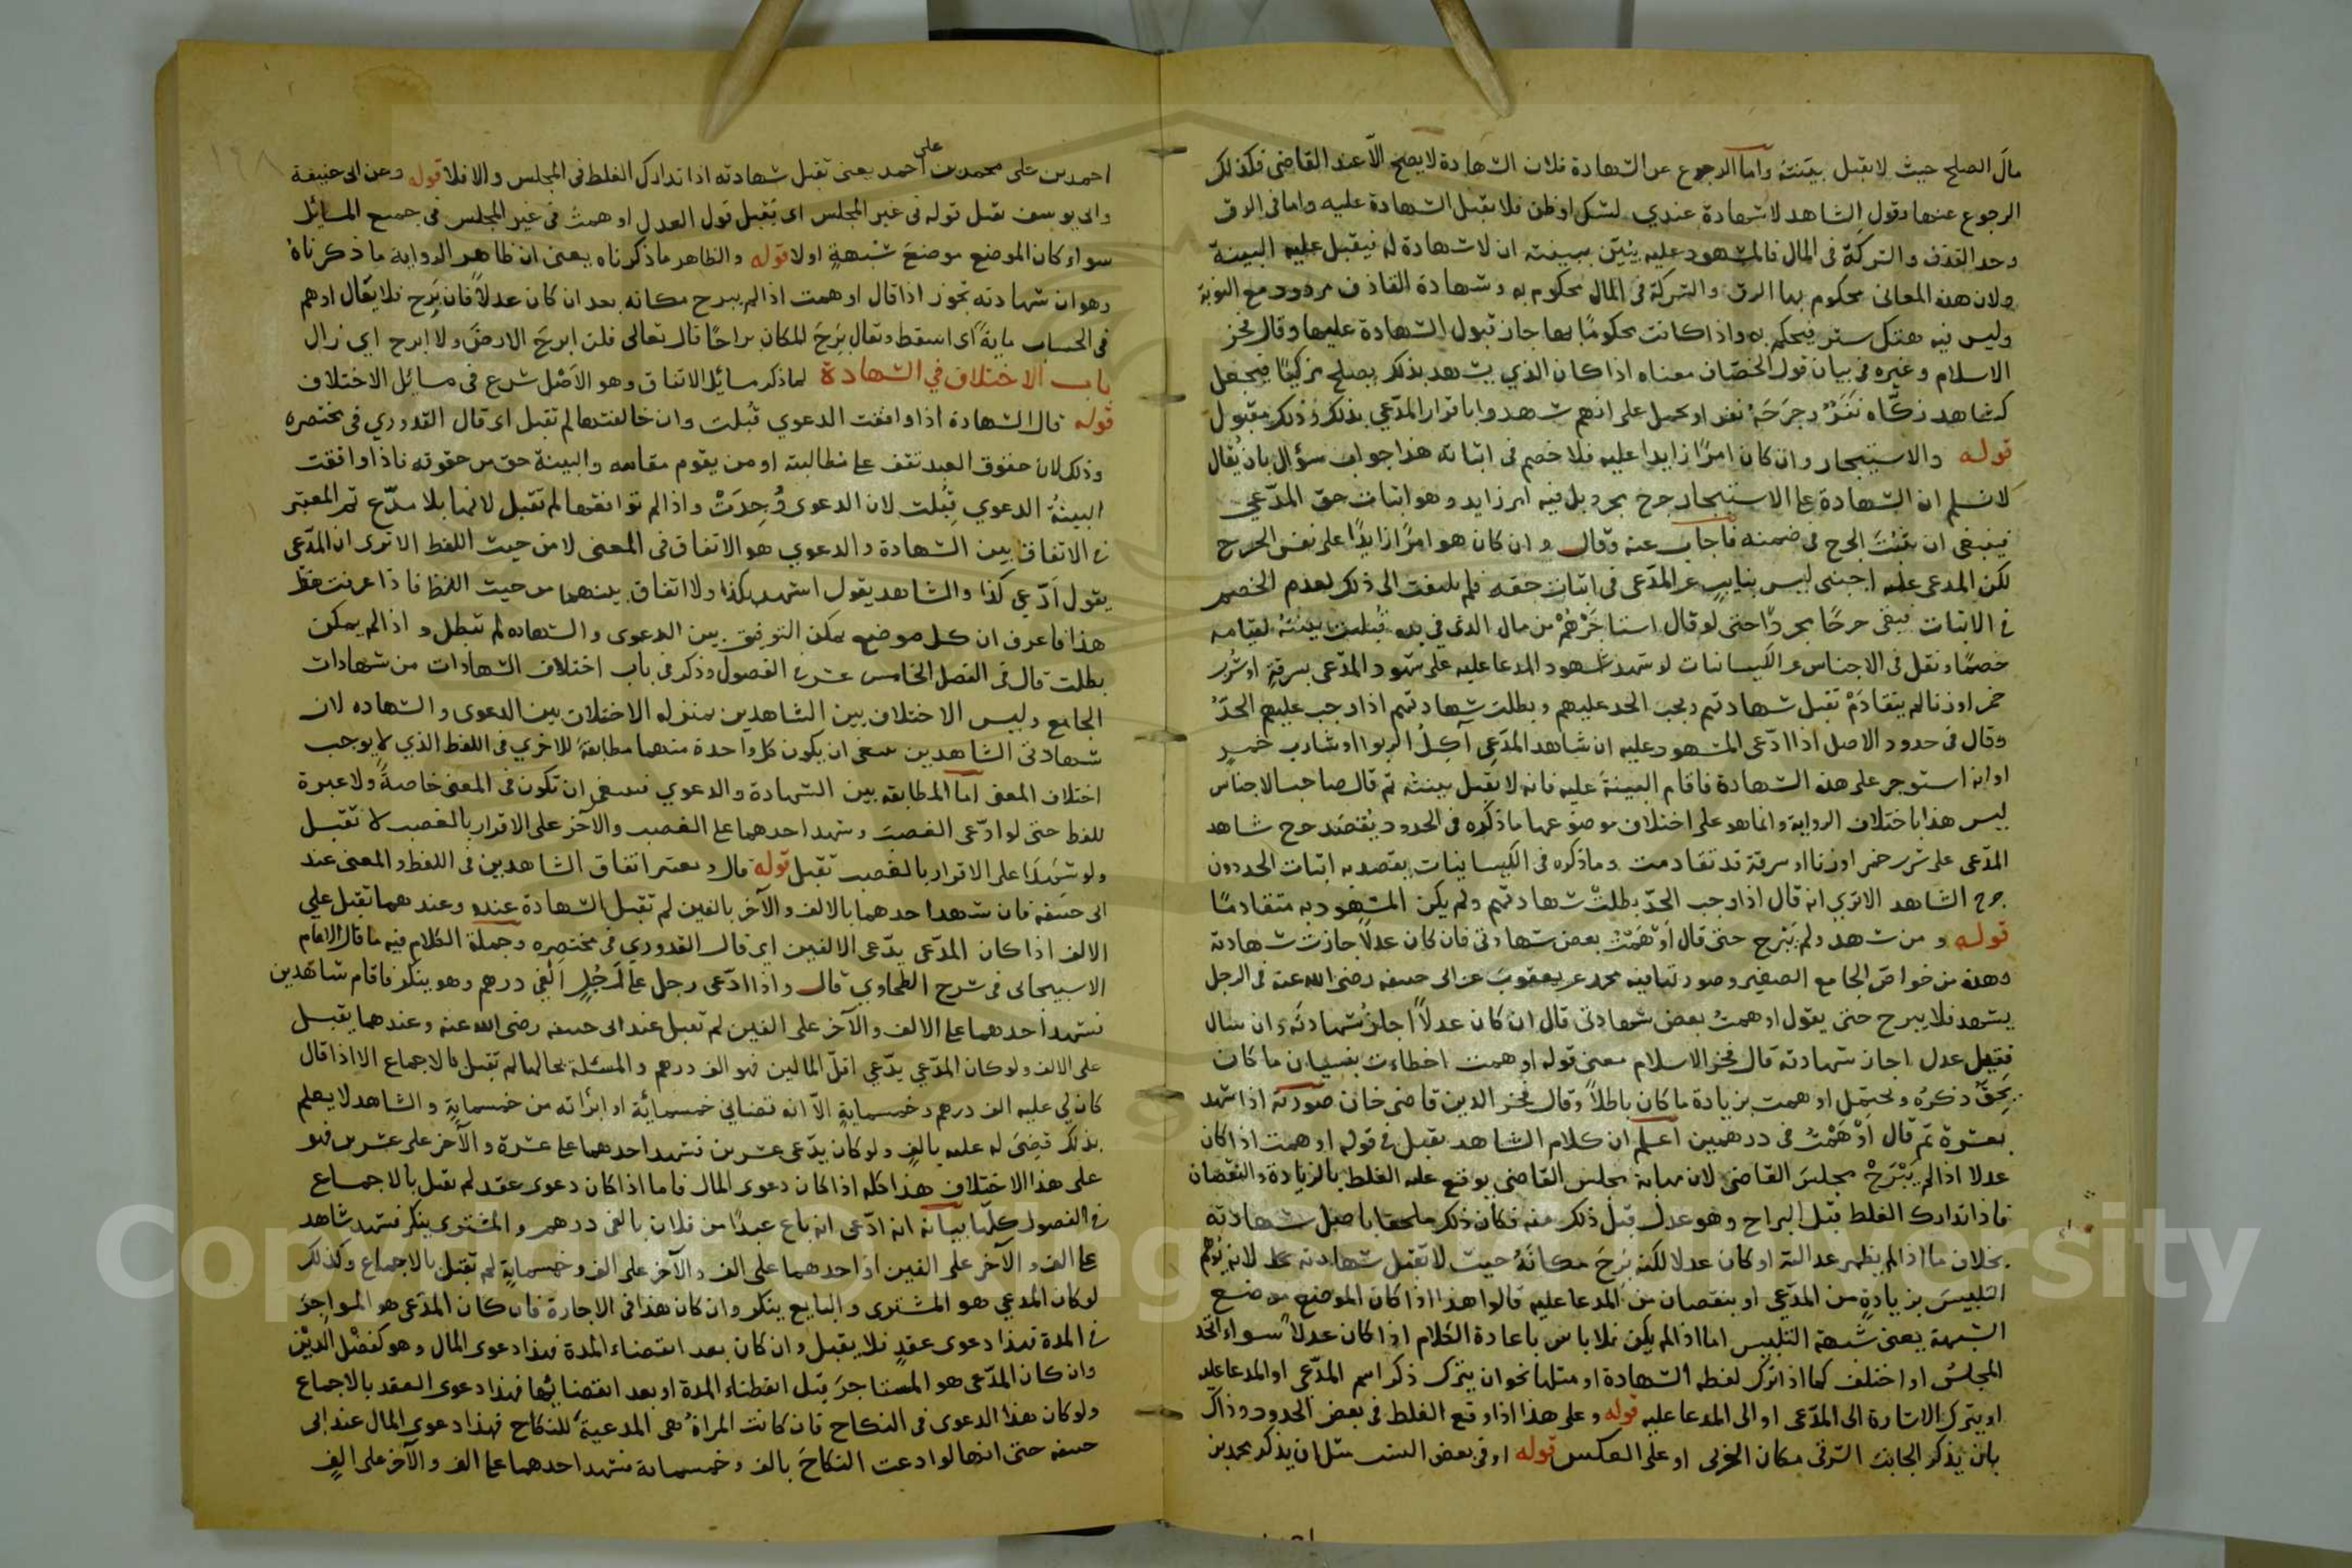 مال الصلح حيث لا يقبل بينته واما الرجوع عن الشهادة فلان الشهادة لا يصح الا عند القاضي فكذلك
الرجوع عنها وقول الشاهد لا شهادة عندي لشك او ظن فلا تقبل الشهادة عليه واما في الرق
وحد القذف والشركة في المال فالمشهود عليه يبين ببينته ان لا شهادة له فيقبل عليه البينة
ولان هذه المعاني محكوم بها الرق والشركة في المال محكوم به وشهادة القاذف مردود مع التوبة
وليس فيه هتك ستر فيحكم به واذا كانت محكومًا بها جاز قبول الشهادة عليها وقال فخر
الاسلام وغيره في بيان قول الخصاف معناه اذا كان الذي يشهد بذلك يصلح مزكيًا فيجعل
كشاهد زكّاه نَفَرٌ وجَرَحَهُ نفر او يحمل على انهم شهدوا باقرار المدّعي بذلك وذلك مقبول
قوله والاستيجار وان كان امرًا زايدا عليه فلا خصم في اثباته هذا جواب سؤال بان يُقال
لا نسلم ان الشهادة على الاستيجار جرح مجرد بل فيه امر زايد وهو اثبات حق المدّعي
فينبغي ان يثبُتَ الجرح في ضمنه فاجاب عنه وقال وان كان هو امرًا زايدًا على نفس الجرح
لكن المدعى عليه اجنبى ليس بنايب عن المدّعى في اثبات حقه فلم يلتفت الى ذلك لعدم الخصم
في الاثبات فبقى جرحًا مجردًا حتى لو قال استاجَرَهُمْ من مال الذي في يده قُبلت بينتُه لقيامه
خصمًا ونقل في الاجناس عن الكيسانيات لو شهد شهود المدعا عليه على شهود المدّعى بسرقةٍ او شرب
خمر او زنا لم يتقادَمْ تقبل شهادتهم ويجب الحد عليهم وبطلت شهادتهم اذا وجب عليهم الحدّ
وقال في حدود الاصل اذا ادّعى المشهود عليه ان شاهد المدّعي آكِلُ الربوا او شارب خمرٍ
او انه استوجر على هذه الشهادة فاقام البينةَ عليه فانه لا تقبل بينته ثم قال صاحب الاجناس
ليس هذا باختلاف الرواية وانما هو على اختلاف موضوعهما ما ذكره في الحدود يُقصَد جرح شاهد
المدّعى على شرب خمر او زنا او سرقة قد تقادمت وما ذكره في الكيسانيات يقصد به اثبات الحد دون
جرح الشاهد الا ترى انه قال اذا وجب الحدّ بطلتْ شهادتهم ولم يكن المشهود به متقادمًا
قوله ومن شهد ولم يَبْرح حتى قال اَوْهَمْتُ بعض شهادتي فان كان عدلًا جازت شهادته
وهذه من خواصّ الجامع الصغير وصورتها فيه محمد عن يعقوب عن ابى حنيفه رضى الله عنه في الرجل
يشهد فلا يبرح حتى يقول اوهمتُ بعض شهادتى قال ان كان عدلًا اجازُ شهادتَه وان سال
فقيل عدل اجاز شهادته قال فخر الاسلام معنى قوله اوهمت اخطاءت بنسيان ما كان
يحقّ ذكرُه ويحتمل اوهمت بزيادة ما كان باطلًا وقال فخر الدين قاضى خان صورته اذا شهد
بعشرة ثم قال اَوْهَمْتُ في درهمين اعلم ان كلام الشاهد يقبل في قوله اوهمت اذا كان
عدلا اذا لم يَبْرَحْ مجلسَ القاضى لان مهابة مجلس القاضى يوقع عليه الغلط بالزيادة والنقصان
فاذا تدارك الغلط قبل البراح وهو عدل قبل ذلك منه فكان ذلك ملحقا باصل شهادته
بخلاف ما اذا لم يظهر عدالته او كان عدلا لكنه بَرِحَ مكانَهُ حيث لا تقبل شهادته لانه يُوهم
التلبيسَ بزيادةٍ من المدّعى او بنقصان من المدعا عليه قالوا هذا اذا كان الموضع موضع
الشبهة يعنى شبهة التلبيس اما اذا لم يكن فلا باس باعادة الكلام اذا كان عدلًا سواء اتحد
المجلسُ او اختلف كما اذا ترك لفظه الشهادة او مثلها نحو ان يترك ذكر اسم المدّعى او المدعا عليه
او يترك الاشارة الى المدّعى او الى المدعا عليه قوله وعلى هذا اذا وقع الغلط في بعض الحدود وذاك
بان يذكر الجانب الشرقي مكان الغربي او على العكس قوله او في بعض النسب مثل ان يذكر محمد بن
احمد بن على محمد بن على احمد يعنى تقبل شهادته اذا تدارك الغلط في المجلس والا فلا قوله وعن ابى حنيفة
وابى يوسف تقبل قوله في غير المجلس اى يُقبل قول العدل اوهمتُ في غير المجلس في جميع المسائل
سواء كان الموضع موضعَ شُبْهةٍ او لا قوله والظاهر ما ذكرناه يعنى ان ظاهر الرواية ما ذكرناهُ
وهو ان شهادته تجوز اذا قال اوهمت اذا لم يبرح مكانه بعد ان كان عدلًا فان بَرِح فلا يقال اوهم
في الحساب مايةً اى اسقط ويقال بَرِحَ المكان براحًا قال تعالى فلن ابرحَ الارضَ ولا ابرح اي زال
باب الاختلاف في الشهادة لما ذكر مسائل الاتفاق وهو الاَصْل شرع في مسائل الاختلاف
قوله قال الشهادة اذا وافقت الدعوي قُبلت وان خالفتها لم تقبل اى قال القدوري في مختصره
وذلك لان حقوق العبد تقف على مطالبته او من يقوم مقامه والبينة حق من حقوقه فاذا وافقت
البينةُ الدعوي قِبُلت لان الدعوى وُجِدَتْ واذا لم توافقها لم تقبل لانها بلا مدّع ثم المعتبر
في الاتفاق بين الشهادة والدعوي هو الاتفاق في المعنى لا من حيث اللفظ الا ترى ان المدّعى
يقول اَدّعي كذا والشاهد يقول اشهد بكذا ولا اتفاق بينهما من حيث اللفظ فاذا عرفت
هذا فاعرف ان كل موضع يمكن التوفيق بين الدعوى والشهاده لم تبطل واذا لم يمكن
بطلت قال في الفصل الخامس عشر في الفصول وذكر في باب اختلاف الشهادات من شهادات
الجامع وليس الاختلاف بين الشاهدين بمنزله الاختلاف بين الدعوى والشهاده لان
شهادتى الشاهدين ينبغي ان يكون كل واحدة منهما مطابقةً للاخري في اللفظ الذي لا يوجب
اختلاف المعنى اما المطابقه بين الشهادة والدعوي فينبغى ان تكون في المعنى خاصةً ولا عبرة
للفظ حتى لو ادّعى الغصبَ وشهد احدهما على الغصب والآخر على الاقرار بالغصب لا تقبل
ولو شهدَا على الاقرار بالغصب تقبل قوله قال ويعتبر اتفاق الشاهدين في اللفظ والمعنى عند
ابى حنيفه فان شهد احدهما بالالف والآخر بالفين لم تقبل الشهادة عنده وعندهما تقبل على
الالف اذا كان المدّعى يدّعى الالفين اي قال القدوري في مختصره وجملة الكلام فيه ما قال الامام
الاسبيجابى في شرح الطحاوي قال واذا ادّعى رجل على رَجُلٍ الفَي درهم وهو ينكر فاقام شاهدين
فشهد احدهما على الالف والآخر على الفين لم تقبل عند ابى حنيفه رضى الله عنه وعندهما يقبل
على الالف ولو كان المدّعي يدّعي اقلّ المالين فهو الف درهم والمسئلة بحالها لم تقبل بالاجماع الا اذا قال
كان لي عليه الف درهم وخمسمايةٍ الاّ انه قضاني خمسمائة او ابرأته من خمسمايةٍ والشاهد لا يعلم
بذلك قُضِيَ له عليه بالفٍ ولو كان يدّعى عشرين فشهد احدهما على عشرة والآخر على عشرين فهو
على هذا الاختلاف هذا كله اذا كان دعوى المال فاما اذا كان دعوى عقد لم تقبل بالاجماع
في الفصول كلّها بيانه انه ادّعى انه باع عبدًا من فلان بالفى درهم والمشترى ينكر فشهد شاهد
على الف والآخر على الفين او احدهما على الف والآخر على الف وخمسمايةٍ لم تقبل بالاجماع وكذلك
لو كان المدعي هو المشترى والبايع ينكر وان كان هذا في الاجارة فان كان المدّعى هو المواجِرَ
في المدة فهذا دعوى عقدٍ فلا يقبل وان كان بعد انقضاء المدة فهذا دعوى المال وهو كفضْل الدَيْن
وان كان المدّعى هو المستاجرَ قبل انقضاء المدة او بعد انقضائها فهذا دعوى العقد بالاجماع
ولو كان هذا الدعوى في النكاح فان كانت المراةُ هى المدعيةُ للنكاح فهذا دعوى المال عند ابى
حنيفه حتى انها لو ادعت النكاحَ بالف وخمسماية فشهد احدهما على الف والآخر على الفٍ